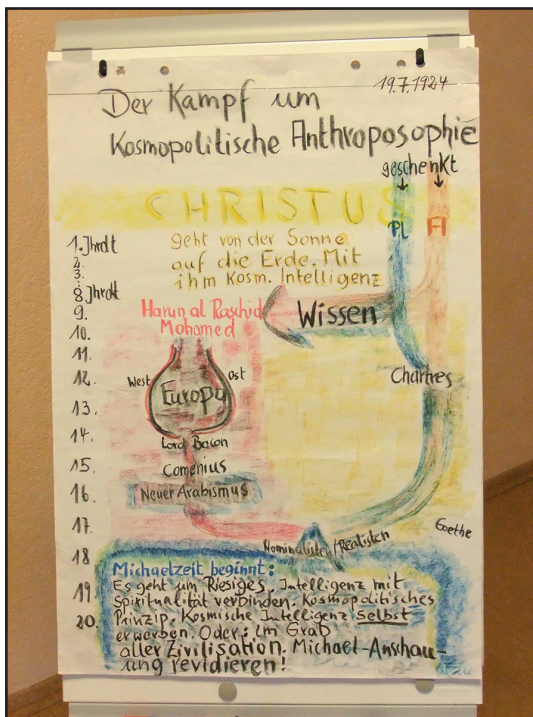 19.7.1924
Der Kampf um
Kosmopolitische Anthroposophie
geschenkt
CHRISTUS
Pl
Fl
1. Jhrdt
geht von der Sonne
2.
auf die Erde. Mit
3.
ihm Kosm. Intelligenz
8 Jhrdt
9.
Harun al Raschid
Wissen
Mohamed
10.
11.
12.
West
Ost
Europa
Chartres
13.
14.
Lord Bacon
15.
Comenius
16.
Neuer Arabismus
17.
Goethe
Nominalisten/Realisten
18
Michaelzeit beginnt:
Es geht um Riesiges, Intelligenz mit
19.
Spiritualität verbinden. Kosmopolitisches
Prinzip. Kosmische Intelligenz selbst
20.
erwerben. Oder: Im Grab
aller Zivilisation. Michael-Anschau-
ung revidieren!